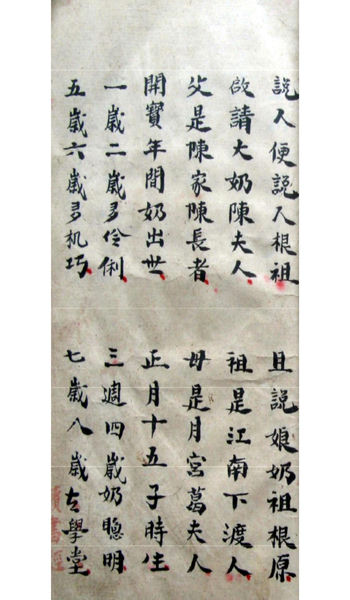 說人便說人根祖 且說娘奶祖根原
啟請大奶陳夫人 祖是江南下渡人
父是陳家陳長者 母是月宮葛夫人
開寶年間奶出世 正月十五子時生
一歲二歲多伶俐 三週四歲奶聰明
五歲六歲多机巧 七歲八歲去學堂